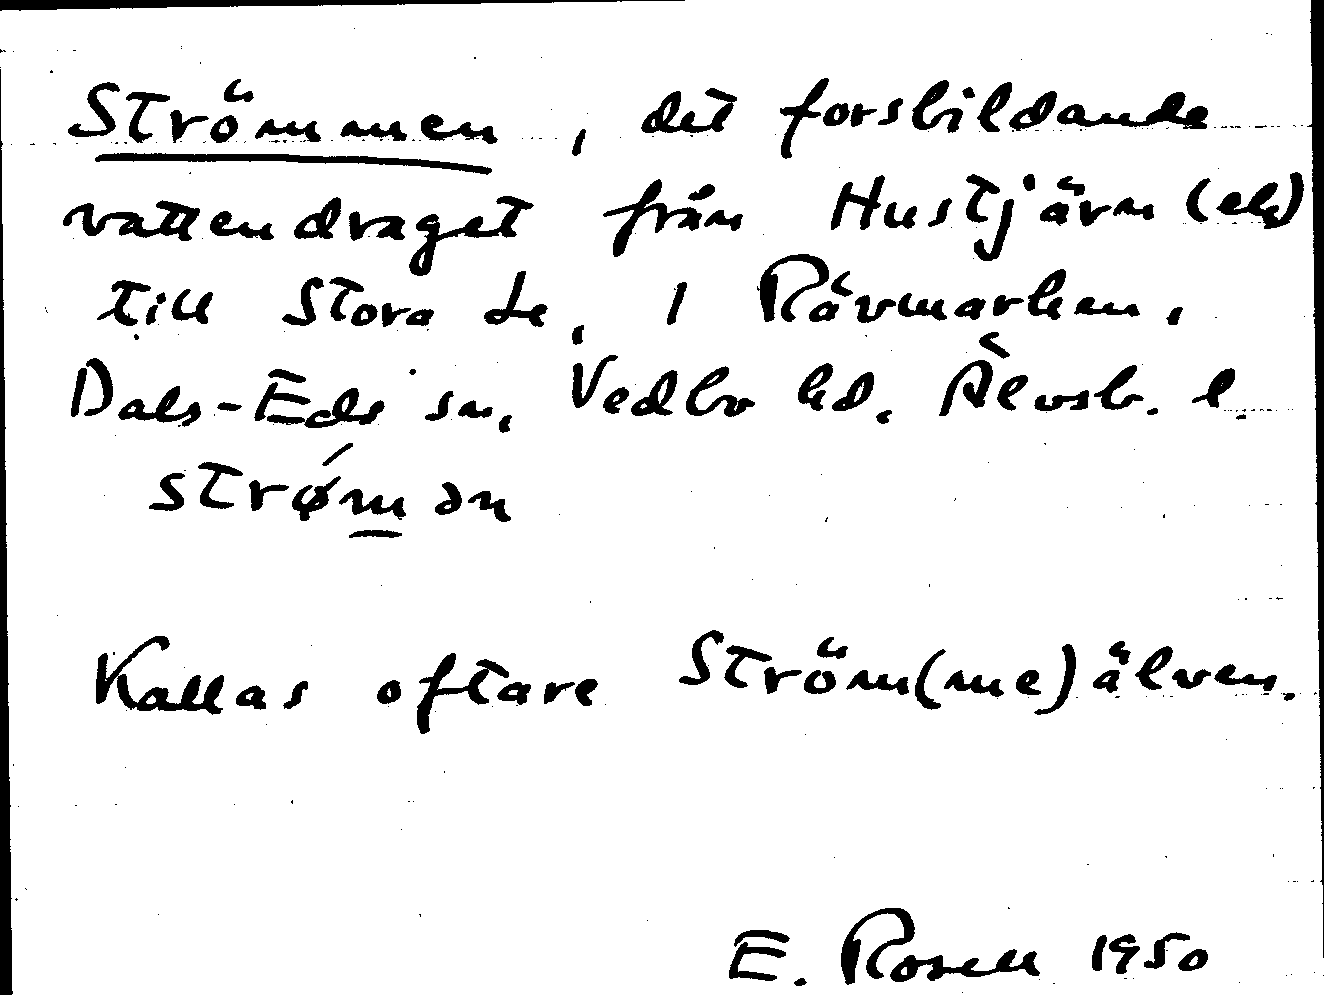 Strömmen, det forsbildande
vattendraget från Hustjärn (ek)
till Stora Le, i Rävmarken,
Dals-Eds sn, Vedbo hd. Älvsb. l.
strǿm ən
Kallas oftare Ström(me)älven.
E. Rosell 1950